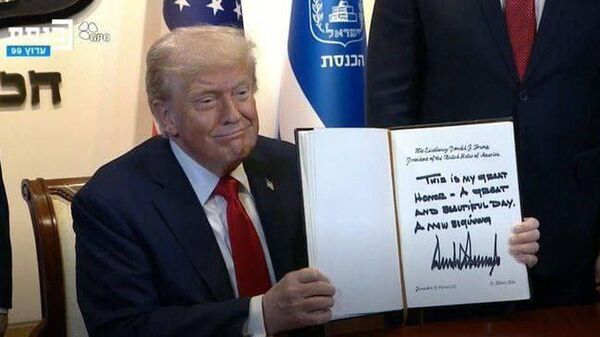 כנסת
ערוץ 99
GPO
ישראל
הכנסת
His Excellency Donald J. Trump
President of the United States of America
THIS IS MY GREAT
HONOR - A GREAT
AND BEAUTIFUL DAY.
A NEW